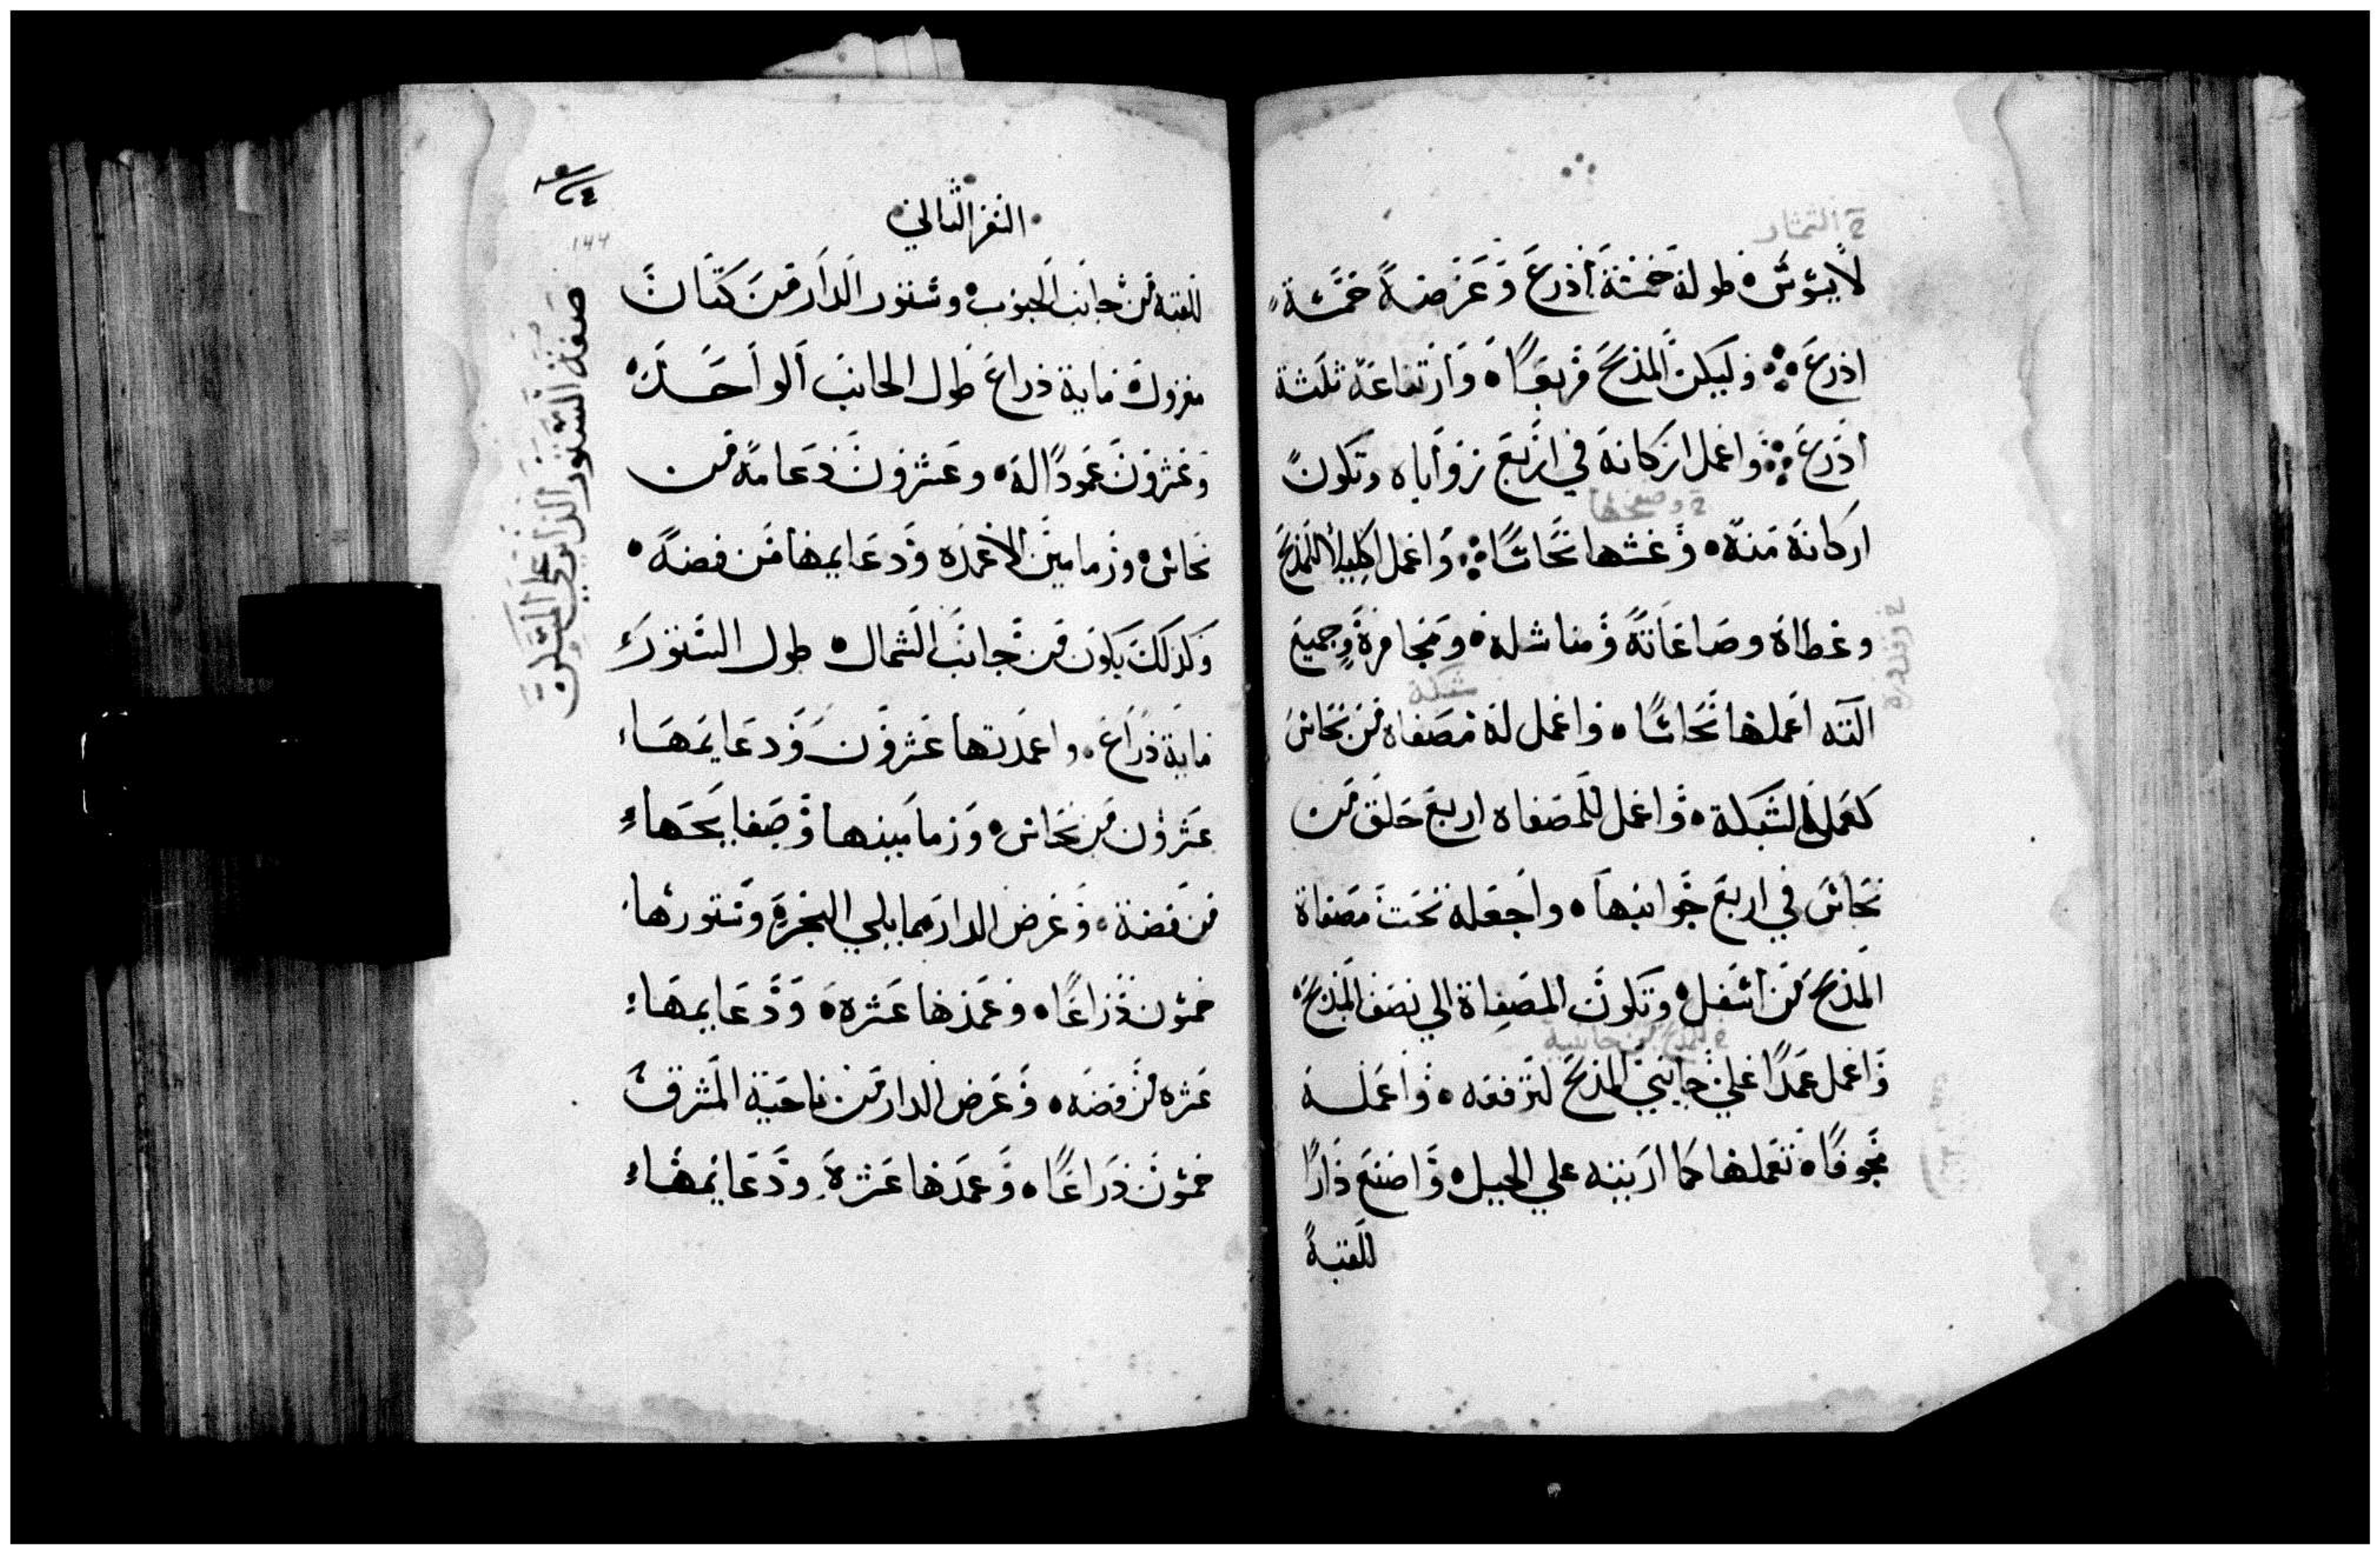 لا يسوس طوله خمسة اذرع وعرضه خمسة
اذرع وليكن المذبح مربعًا وارتفاعه ثلثة
اذرع واعمل اركانه في اربع زواياه وتكون
اركانه منه وغشها نحاسًا واعمل اكليلا للمذبح
وغطاه وصاغاته ومناشله ومجامره وجميع
آلته اعملها نحاسًا واعمل له مصفاه من نحاس
كعمل الشبكة واعمل للمصفاه اربع حلق من
نحاس في اربع جوانبها واجعله تحت مصفاة
المذبح من اسفل وتكون المصفاة الي نصف المذبح
واعمل عمدًا علي جانبي المذبح لترفعه واعمله
مجوفًا تعملها كما اريته علي الجبل واصنع دارًا
للقبة
السفر الثاني
للقبة من جانب الجنوب وستور الدار من كتان
مغزول ماية ذراع طول الجانب الواحد
وعشرون عمودًا له وعشرون دعامة من
نحاس وزمامين الاعمده ودعايمها من فضة
وكذلك يكون من جانب الشمال طول الستور
ماية ذراع واعمدتها عشرون ودعايمها
عشرون من نحاس وزمامينها وصفايحها
من فضة وعرض الدار مما يلي البحر وستورها
خمسون ذراعًا وعمدها عشره ودعايمها
عشره من فضه وعرض الدار من ناحية المشرق
خمسون ذراعًا وعمدها عشرة ودعايمها
صفة الستور الذي علي المسكن